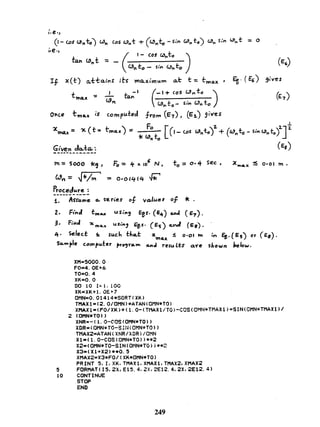 i.e.,
(1 - cos ωn to) ωn cos ωn t + (ωn to - sin ωn to) ωn sin ωn t = 0
i.e.,
tan ωn t = - ( (1 - cos ωn to) / (ωn to - sin ωn to) ) (E6)
If x(t) attains its maximum at t = tmax, Eq. (E6) gives
tmax = 1/ωn tan⁻¹ ( (-1 + cos ωn to) / (ωn to - sin ωn to) ) (E7)
Once tmax is computed from (E7), (E5) gives
xmax = x(t = tmax) = Fo / (k ωn to) [ (1 - cos ωn to)² + (ωn to - sin ωn to)² ]^½
(E8)
Given data:
m = 5000 kg, Fo = 4 × 10⁶ N, to = 0.4 sec, xmax ≤ 0.01 m.
ωn = √(k/m) = 0.01414 √k
Procedure:
1. Assume a series of values of k.
2. Find tmax using Eqs. (E4) and (E7).
3. Find xmax using Eqs. (E5) and (E8).
4. Select k such that xmax ≤ 0.01 m in Eq. (E5) or (E8).
Sample computer program and results are shown below.
XM=5000.0
FO=4.0E+6
TO=0.4
XK=0.0
DO 10 I=1,100
XK=XK+1.0E+7
OMN=0.01414*SQRT(XK)
TMAX1=(2.0/OMN)*ATAN(OMN*TO)
XMAX1=(FO/XK)*(1.0-(TMAX1/TO)-COS(OMN*TMAX1)+SIN(OMN*TMAX1)/
2 (OMN*TO))
XNR=-(1.0-COS(OMN*TO))
XDR=(OMN*TO-SIN(OMN*TO))
TMAX2=ATAN(XNR/XDR)/OMN
X1=(1.0-COS(OMN*TO))**2
X2=(OMN*TO-SIN(OMN*TO))**2
X3=(X1+X2)**0.5
XMAX2=X3*FO/(XK*OMN*TO)
PRINT 5, I, XK, TMAX1, XMAX1, TMAX2, XMAX2
5 FORMAT(I5,2X,E15.4,2X,2E12.4,2X,2E12.4)
10 CONTINUE
STOP
END
249